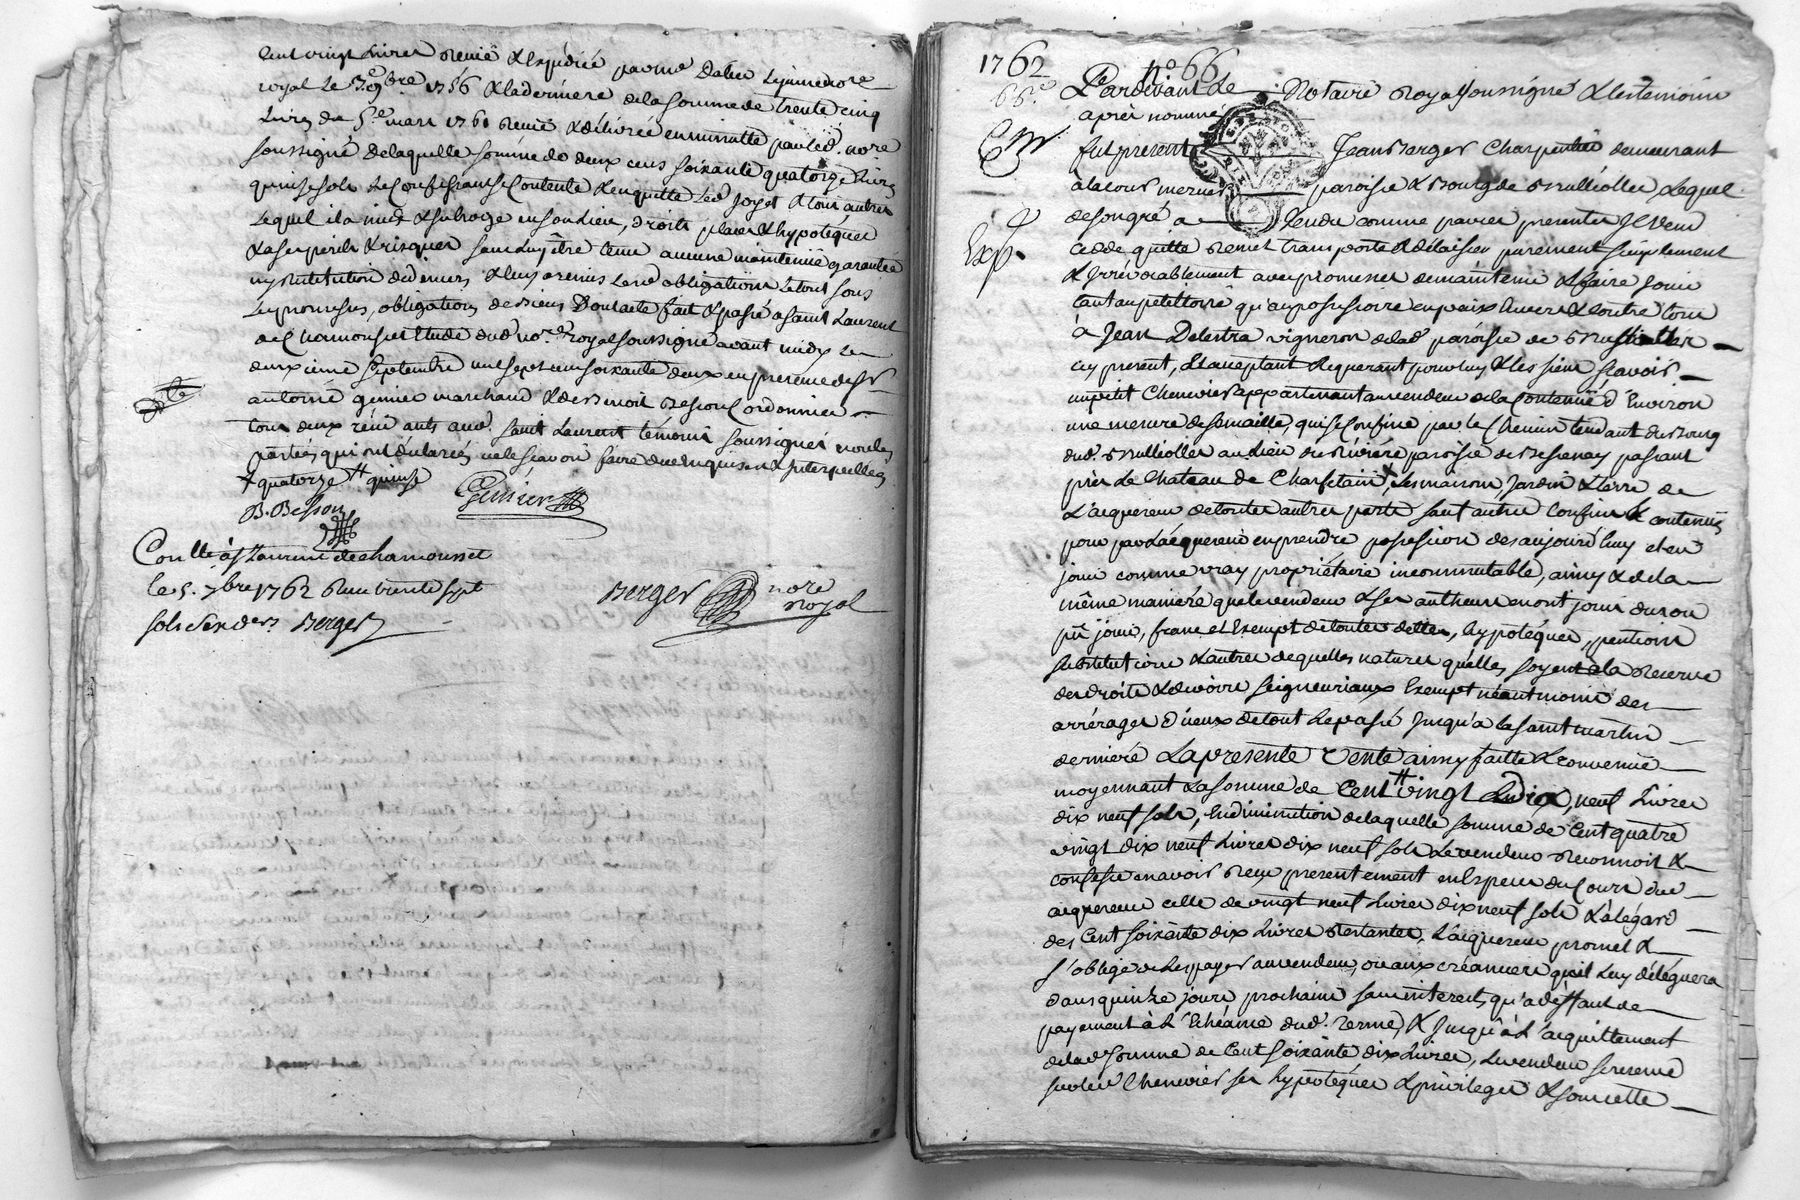 Cent vingt Livres Receüe & Expédiée par me Dalier Lejeune no.re
royal Le 3.e 9.bre 1756 & la derniere de la somme de trente cinq
Livres du 5.e mars 1761 Receüe & délivrée en minutte par led. no.re
soussigné De laquelle somme de deux cens soixante quatorze Livres
quinse sols Se Confessant Contente & en quitte Led Joyet & tous autres
Lequel il a mis & subrogé en son Lieu, droits place & hypotéques
& a ses perils & risques sans Luy être tenu aucune maintenüe garantie
ny Restitution de deniers & luy a remis Lesd obligations Le tout sous
Les promesses, obligations de Biens, Dont acte fait & passé a saint Laurent
de Chamousset Etude dud no.re royal soussigné avant midy Le
deuxieme septembre mil sept cens soixante deux en presence de sr
antoine genier marchand & de Benoit Besson Cordonnier
tous deux residants aud. saint Laurent témoins soussignés non les
parties qui ont declarées ne le scavoir faire de ce Enquises & Interpellées
+ quatorze # quinse
B. Besson
Genier
Con.llé à st Laurent de chamousset
le 5. 7bre 1762 Receu trente sept
sols six ders. Berger
Berger no.re royal
1762
n.o 66
66.e
Pardevant Le Notaire Royal soussigné & les temoins
après nommés
fut present Jean Berger Charpentier demeurant
a la cour paroisse & Bourg de Brullioles Lequel
de son gré a vendu comme par ces presentes Il Vend
cedde quitte remet transporte & delaisse purement simplement
& Irrévocablement avec promesses de maintenir & faire jouir
tant au petittoire qu'au possessoire en paix Envers & contre tous
à Jean Delestra vigneron de lad paroisse de Brullioles
cy present, & acceptant & Requerant pour luy & les siens scavoir
un petit Chenevier appartenant au vendeur de la Contenüe d'Environ
une mesure de semaille, qui se Confine par le Chemin tendant du Bourg
dud. Brullioles au Lieu de Riviére paroisse de Bessenay passant
près Le Chateau de Charfetain, Les maison, Jardin & terre de
L'acquereur de toutes autres parts sauf autres Confins & contenüe
pour par L'acquereur en prendre possession des aujourd'huy et en
jouir comme vray propriétaire incommutable, ainsy & de la
même maniére que le vendeur & ses autheurs en ont joui du ou
pû jouir, franc et Exempt de toutes dettes, hypotéques, pentions
substitutions & autres de quelles natures qu'elles soyent à la Reserve
des droits & devoirs seigneuriaux Exempt néantmoins des
arrérages d'iceux de tout Le passé Jusqu'a la saint martin
derniére La presente Vente ainsy faitte & convenüe
moyennant La somme de Cent # vingt & dix, neuf Livres
dix neuf sols, En diminution de laquelle somme de Cent quatre
vingt dix neuf Livres dix neuf sols Le vendeur Reconnoit &
confesse en avoir Reçu presentement en Especes du Cours dud
acquereur celle de vingt neuf Livres dix neuf sols & à légard
des Cent soixante dix Livres Restantes, L'acquereur promet &
s'oblige de Les payer au vendeur, ou aux créanciers qu'il Luy déléguera
dans quinze jours prochains sans interets, qu'a déffaut de
payement à L'Echéance dud. terme, & Jusqu'à L'acquittement
de lad somme de Cent soixante dix Livres, Le vendeur se reserve
sur led Chenevier ses hypotéques & privileges & sous cette
Exp.